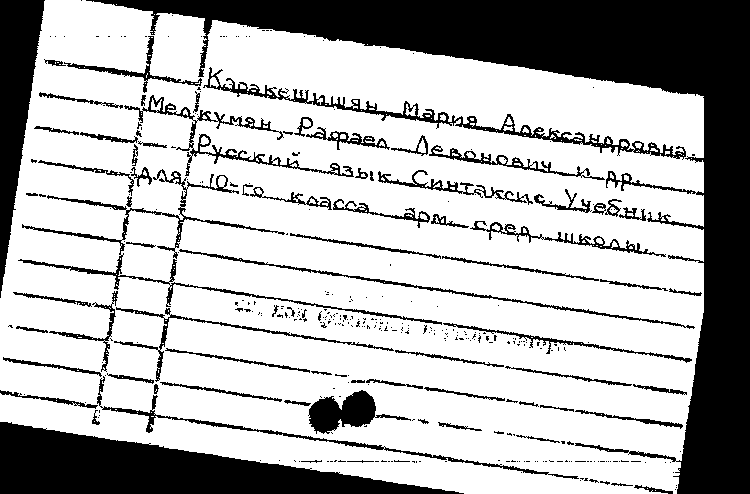 Каракешишян, Мария Александровна.
Мелкумян, Рафаел Левонович и др.
Русский язык. Синтаксис. Учебник
для 10-го класса арм. сред. школы.
см. под фамилией первого автора